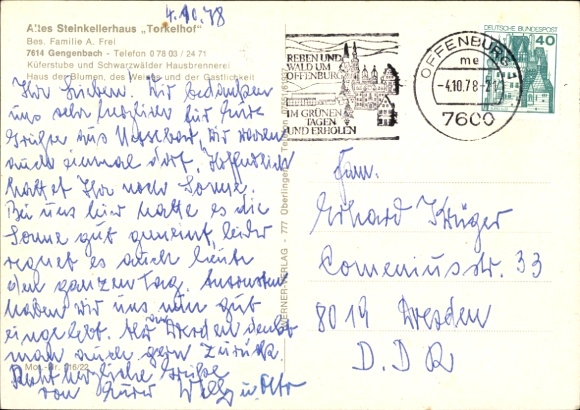 4.10.78
Altes Steinkellerhaus „Torkelhof"
Bes. Familie A. Frei
7614 Gengenbach - Telefon 0 78 03 / 24 71
Küferstube und Schwarzwälder Hausbrennerei
Haus der Blumen, des Weines und der Gastlichkeit
Ihr Lieben! Wir bedanken
uns sehr herzlich für Eure
Grüße aus Wir waren
auch einmal dort. Hoffentlich
hattet Ihr noch Sonne.
Bei uns hier hatte es die
Sonne gut gemeint, leider
regnet es auch heute
den ganzen Tag. Ansonsten
haben wir uns nun gut
eingelebt. Aber an Werdau denkt
man auch gern zurück.
Recht herzliche Grüße
von Eurer Welly u. Otto
Mod.-Nr. 116/22
WERNER-VERLAG - 777 Überlingen - Telefon
REBEN UND
WALD UM
OFFENBURG
IM GRÜNEN
TAGEN
UND ERHOLEN
OFFENBURG
me
-4.10.78-21
7600
DEUTSCHE BUNDESPOST
40
Fam.
Erhard Krüger
Comeniusstr. 33
8019 Dresden
D.D.R